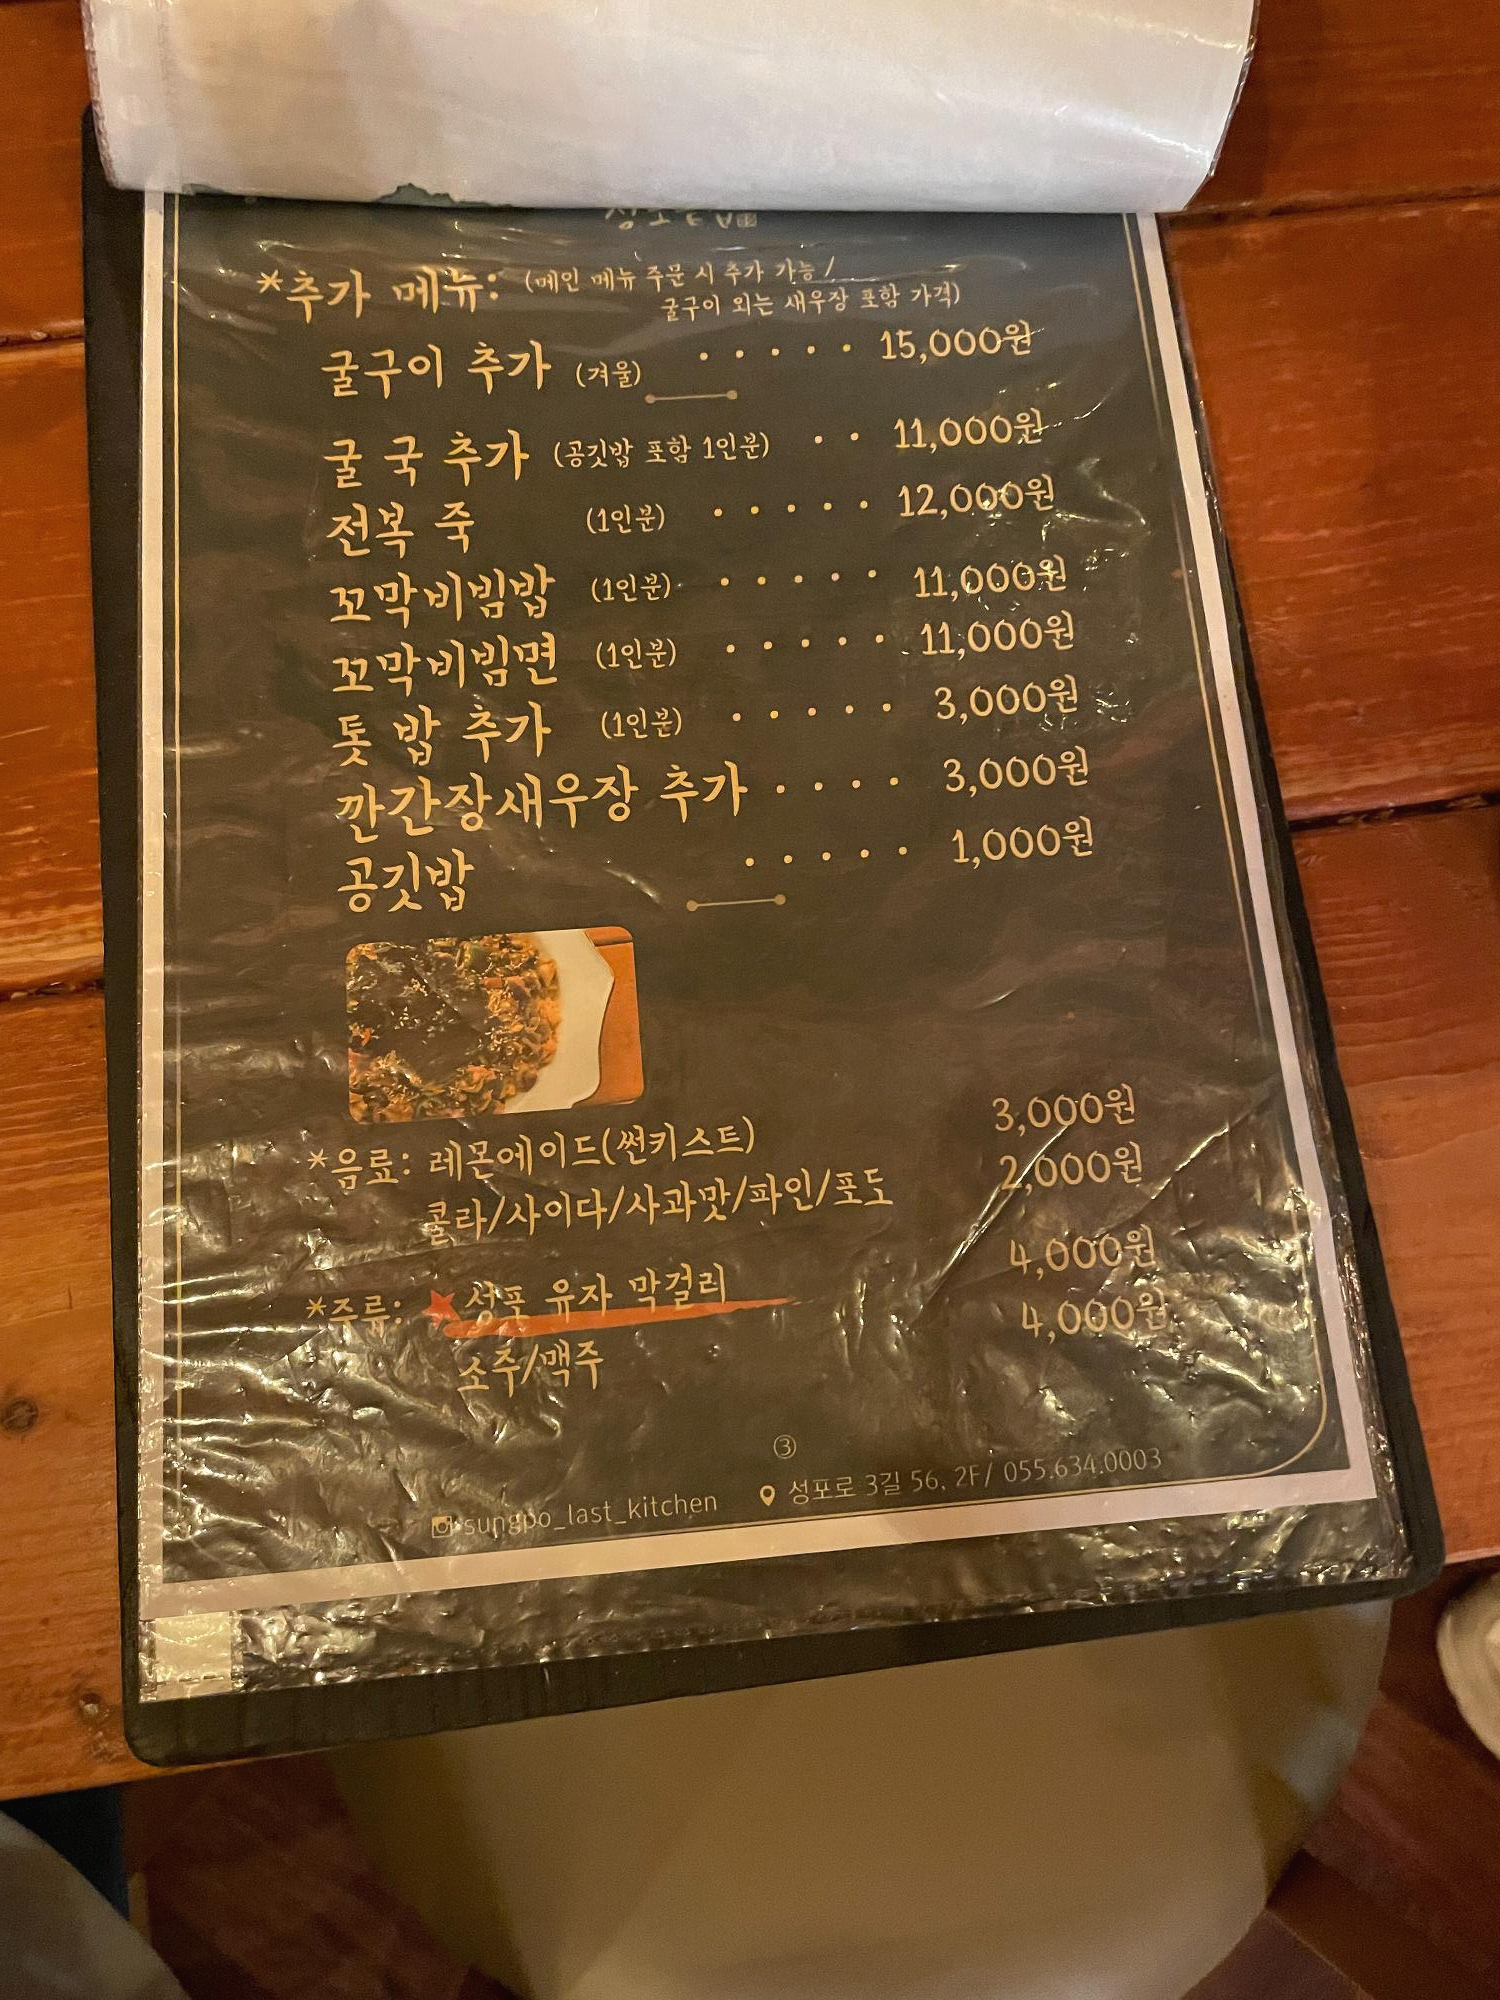 *추가 메뉴: (메인 메뉴 주문 시 추가 가능 /
굴구이 외는 새우장 포함 가격)
굴구이 추가 (겨울) · · · · · 15,000원
굴 국 추가 (공깃밥 포함 1인분) · · 11,000원
전복 죽 (1인분) · · · · · 12,000원
꼬막비빔밥 (1인분) · · · · · 11,000원
꼬막비빔면 (1인분) · · · · · 11,000원
톳 밥 추가 (1인분) · · · · · 3,000원
깐간장새우장 추가 · · · · 3,000원
공깃밥 · · · · · 1,000원
*음료: 레몬에이드(썬키스트) 3,000원
콜라/사이다/사과맛/파인/포도 2,000원
*주류: 성포 유자 막걸리 4,000원
소주/맥주 4,000원
③
sungpo_last_kitchen 성포로 3길 56, 2F/ 055.634.0003